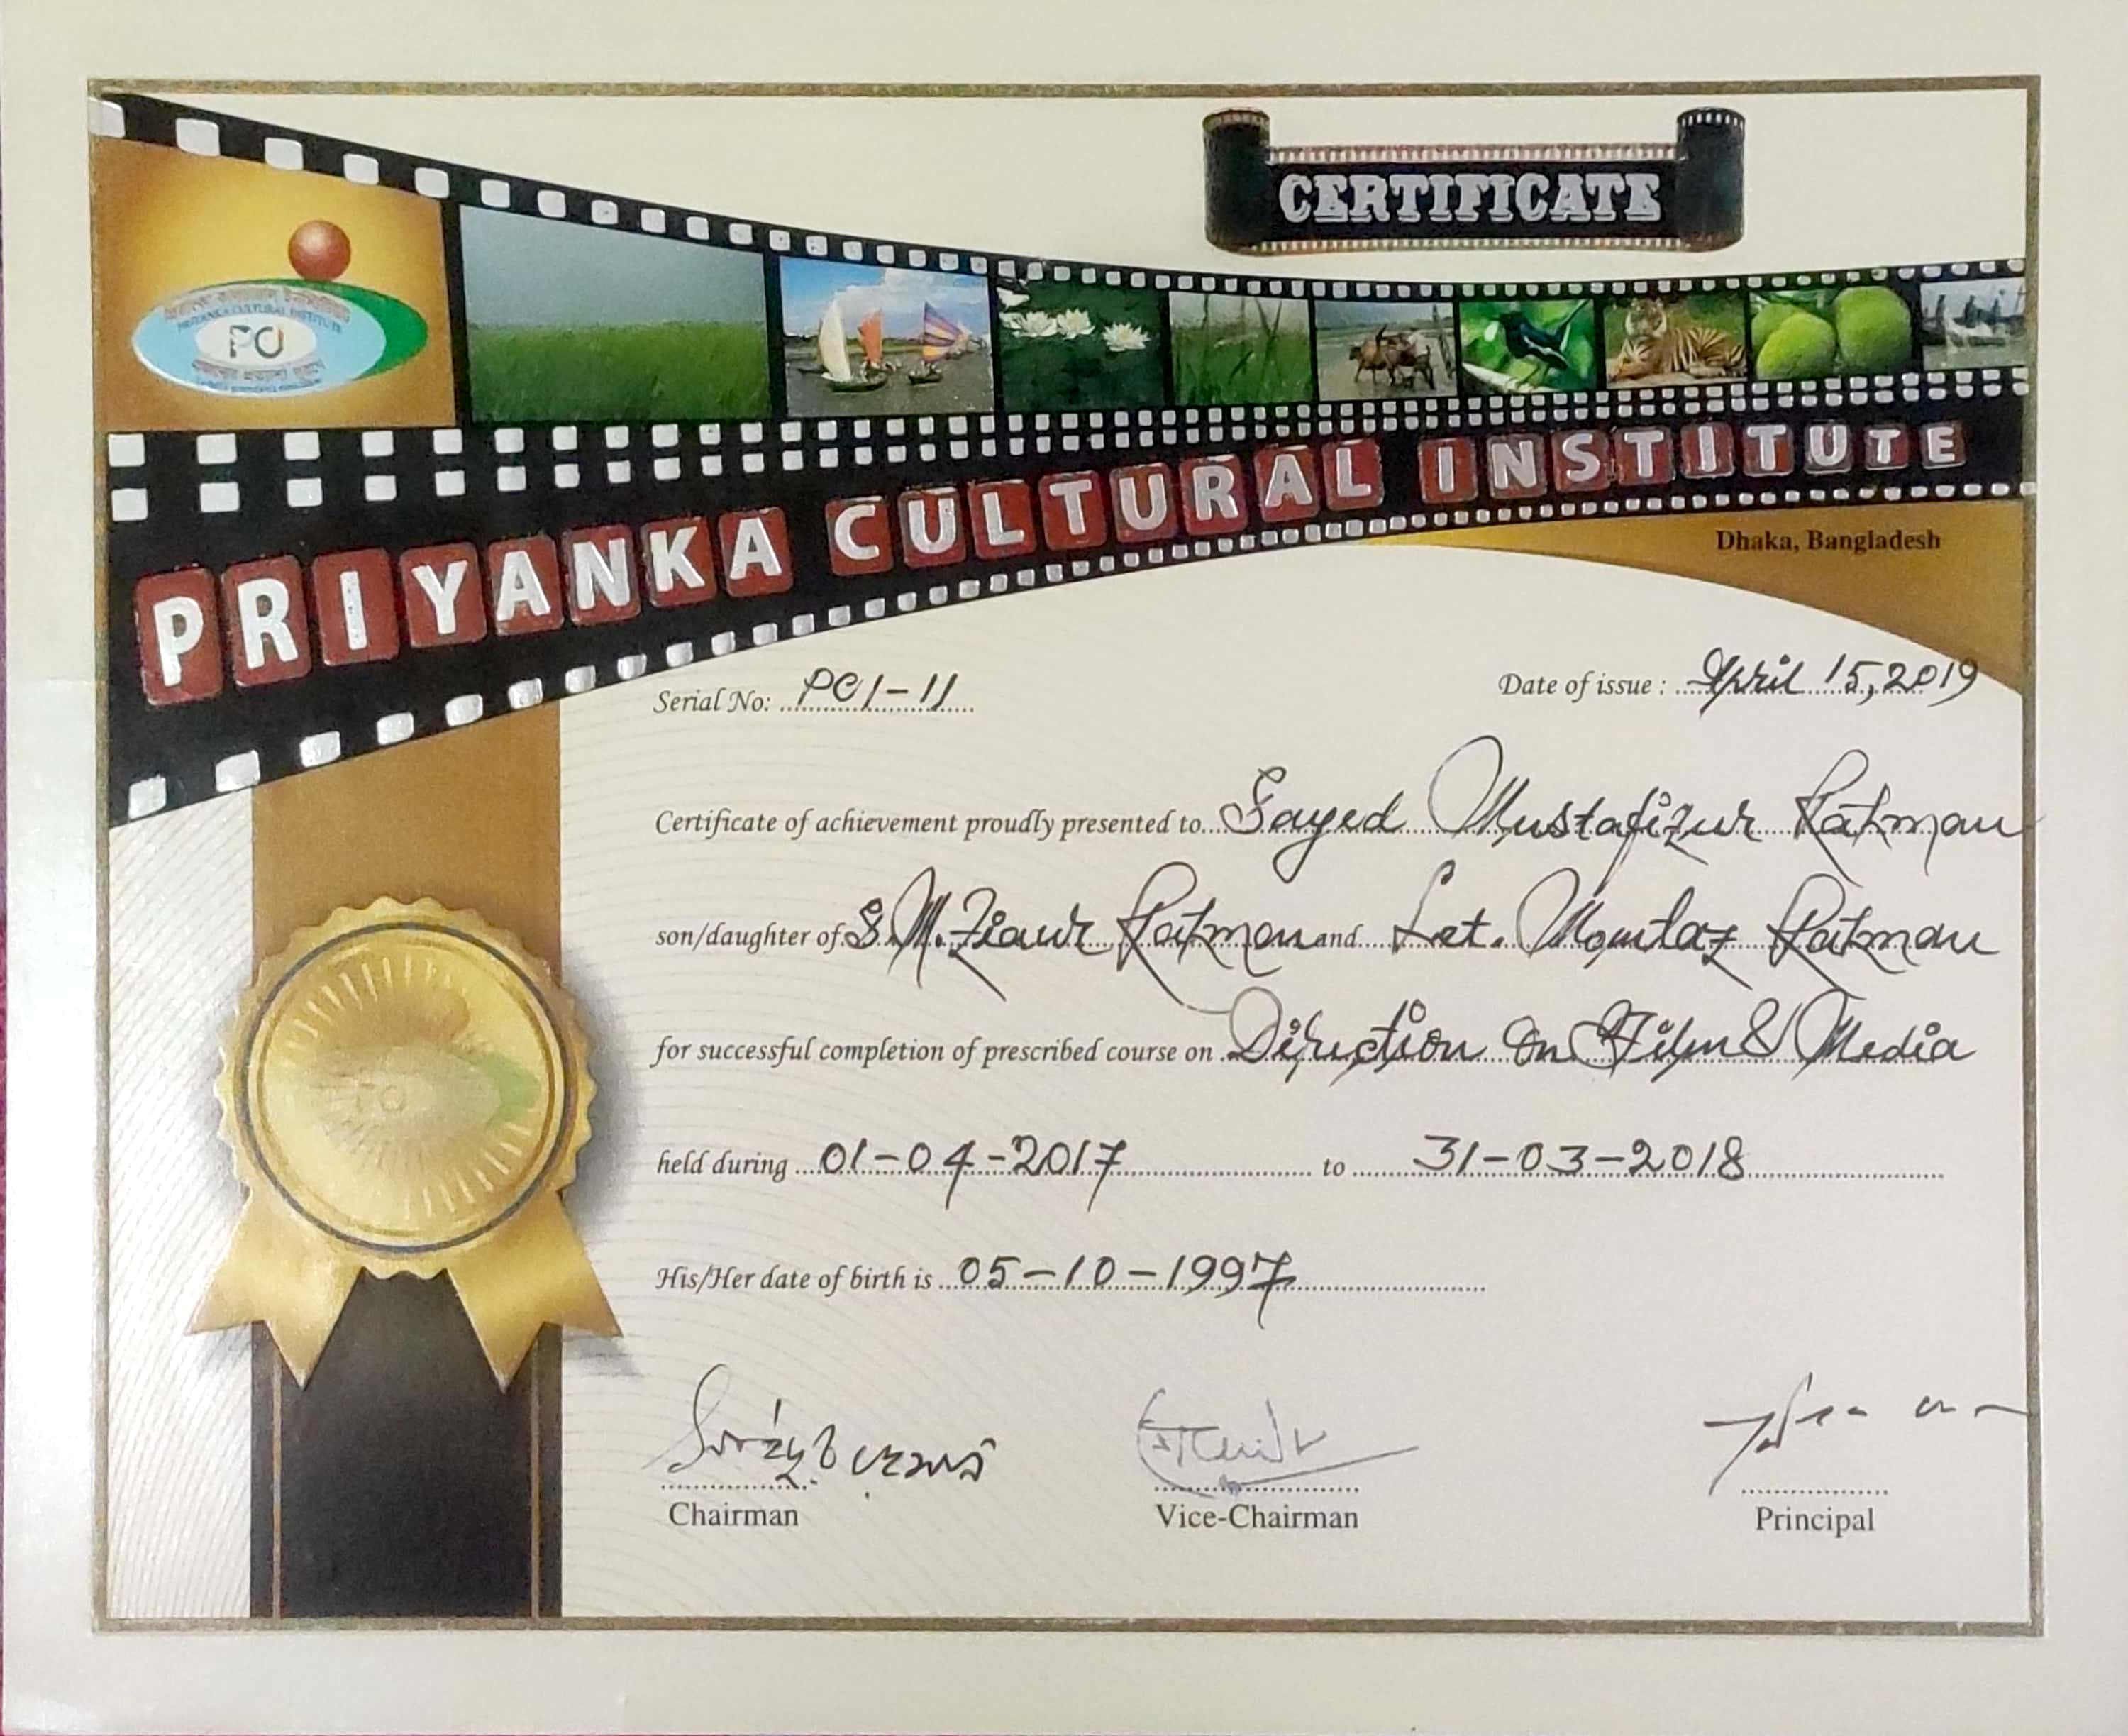 CERTIFICATE
PRIYANKA CULTURAL INSTITUTE
PRIYANKA CULTURAL INSTITUTE
PCI
Dhaka, Bangladesh
Serial No: PCI-11
Date of issue : April 15, 2019
Certificate of achievement proudly presented to Sayed Mustafizur Rahman
son/daughter of S.M. Ziaur Rahman and Let. Momtaz Rahman
for successful completion of prescribed course on Direction On Film & Media
held during 01-04-2017 to 31-03-2018
His/Her date of birth is 05-10-1997
Chairman
Vice-Chairman
Principal